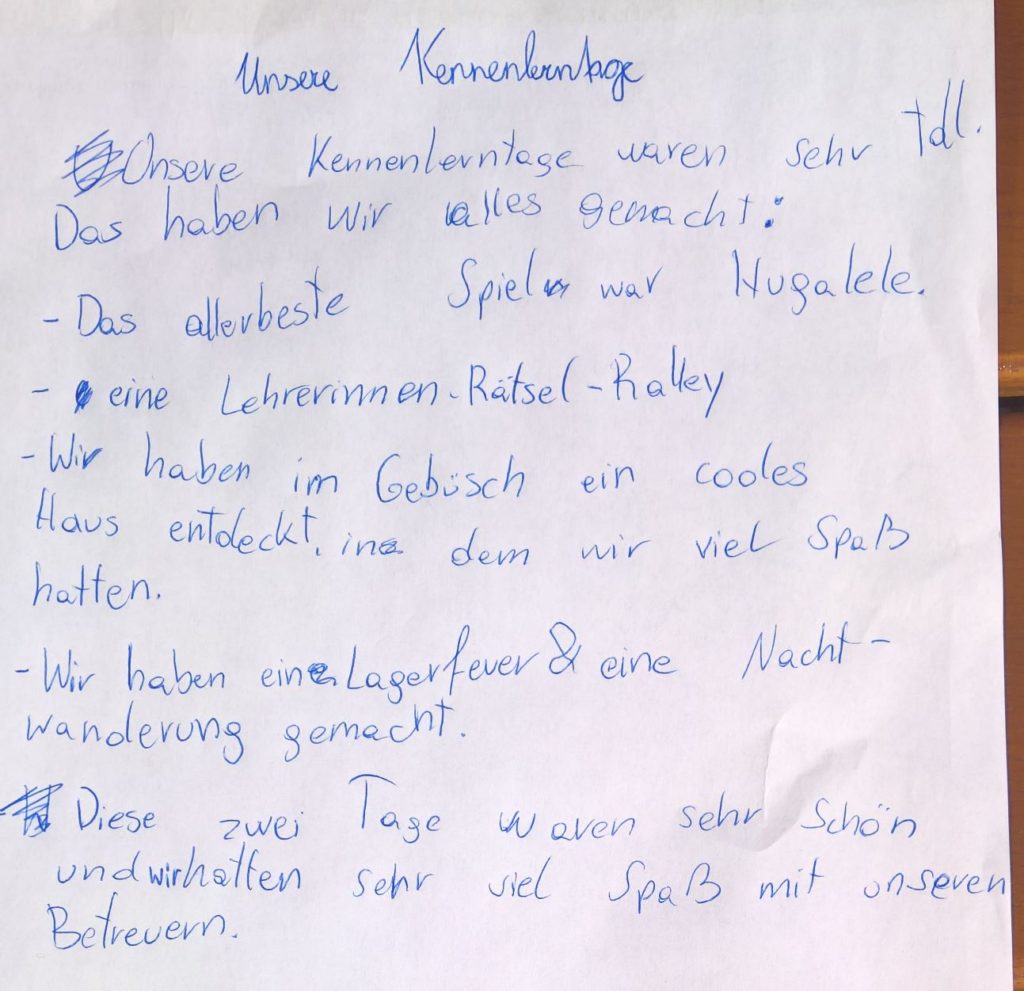 Unsere Kennenlerntage
Unsere Kennenlerntage waren sehr toll.
Das haben wir alles gemacht:
- Das allerbeste Spiel war Hugalele.
- eine Lehrerinnen-Rätsel-Ralley
- Wir haben im Gebüsch ein cooles
Haus entdeckt, in dem wir viel Spaß
hatten.
- Wir haben ein Lagerfeuer & eine Nacht-
wanderung gemacht.
Diese zwei Tage waren sehr schön
und wir hatten sehr viel Spaß mit unseren
Betreuern.